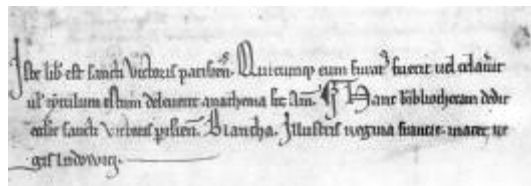 Iste lib' est sancti Victoris parisien̄. Quicumq; eum furat' fuerit uel celauerit
uel titulum istum deleuerit anathema sit. Am̄. Hanc bibliothecam dedit
ecclie sancti Victoris parisien̄. Blancha. Illustris regina francie. mater re
gis Ludouici.